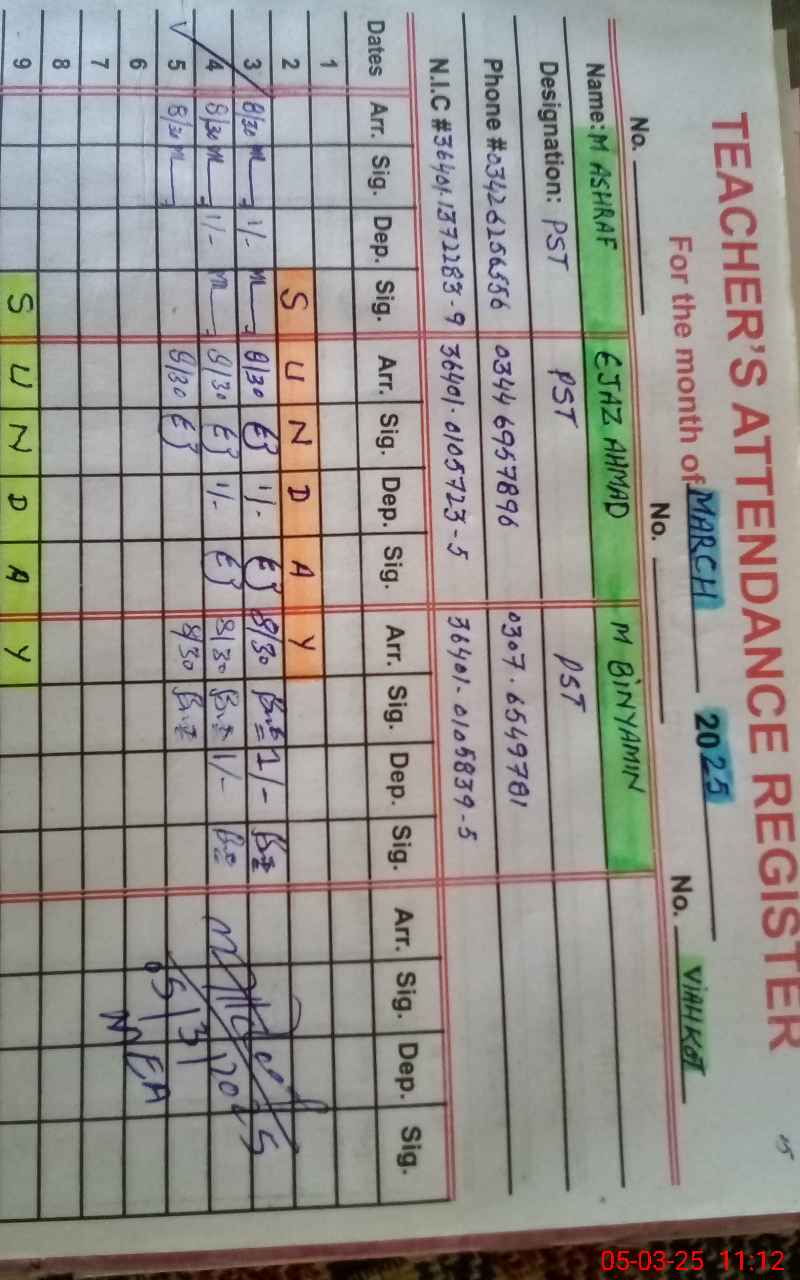 15
TEACHER'S ATTENDANCE REGISTER
For the month of MARCH 2025
No. No. No. VIAHKOT
Name: M ASHRAF EJAZ AHMAD M BINYAMIN
Designation: PST PST PST
Phone #03426256556 0344 6957896 0307.6549781
N.I.C #36401.1372283-9 36401.0105723-5 36401.0105839-5
Dates Arr. Sig. Dep. Sig. Arr. Sig. Dep. Sig. Arr. Sig. Dep. Sig. Arr. Sig. Dep. Sig.
1
2 S U N D A Y
3 8/30 1/- 8/30 1/- 8/30 1/-
4 8/30 1/- 8/30 1/- 8/30 1/-
5 8/30 8/30 8/30
05/3/2025
6 MEA
7
8
9 S U N D A Y
05-03-25 11:12